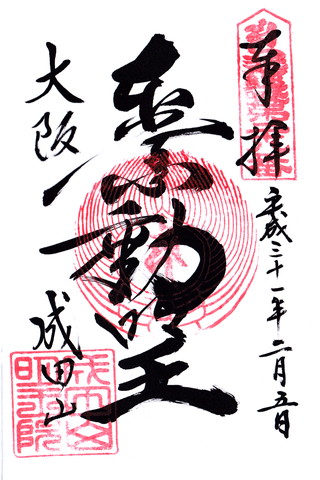 奉拝
平成三十一年二月五日
不動明王
大阪
成田山
成田山
明王院